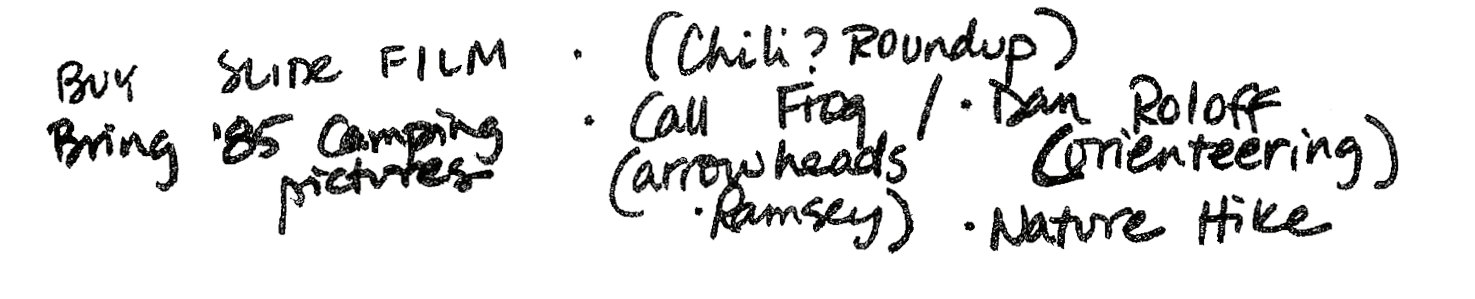 BUY SLIDE FILM · (Chili? Roundup)
Bring '85 Camping · Call Frog / · Dan Roloff
pictures (arrowheads (orienteering)
· Ramsey) · Nature Hike